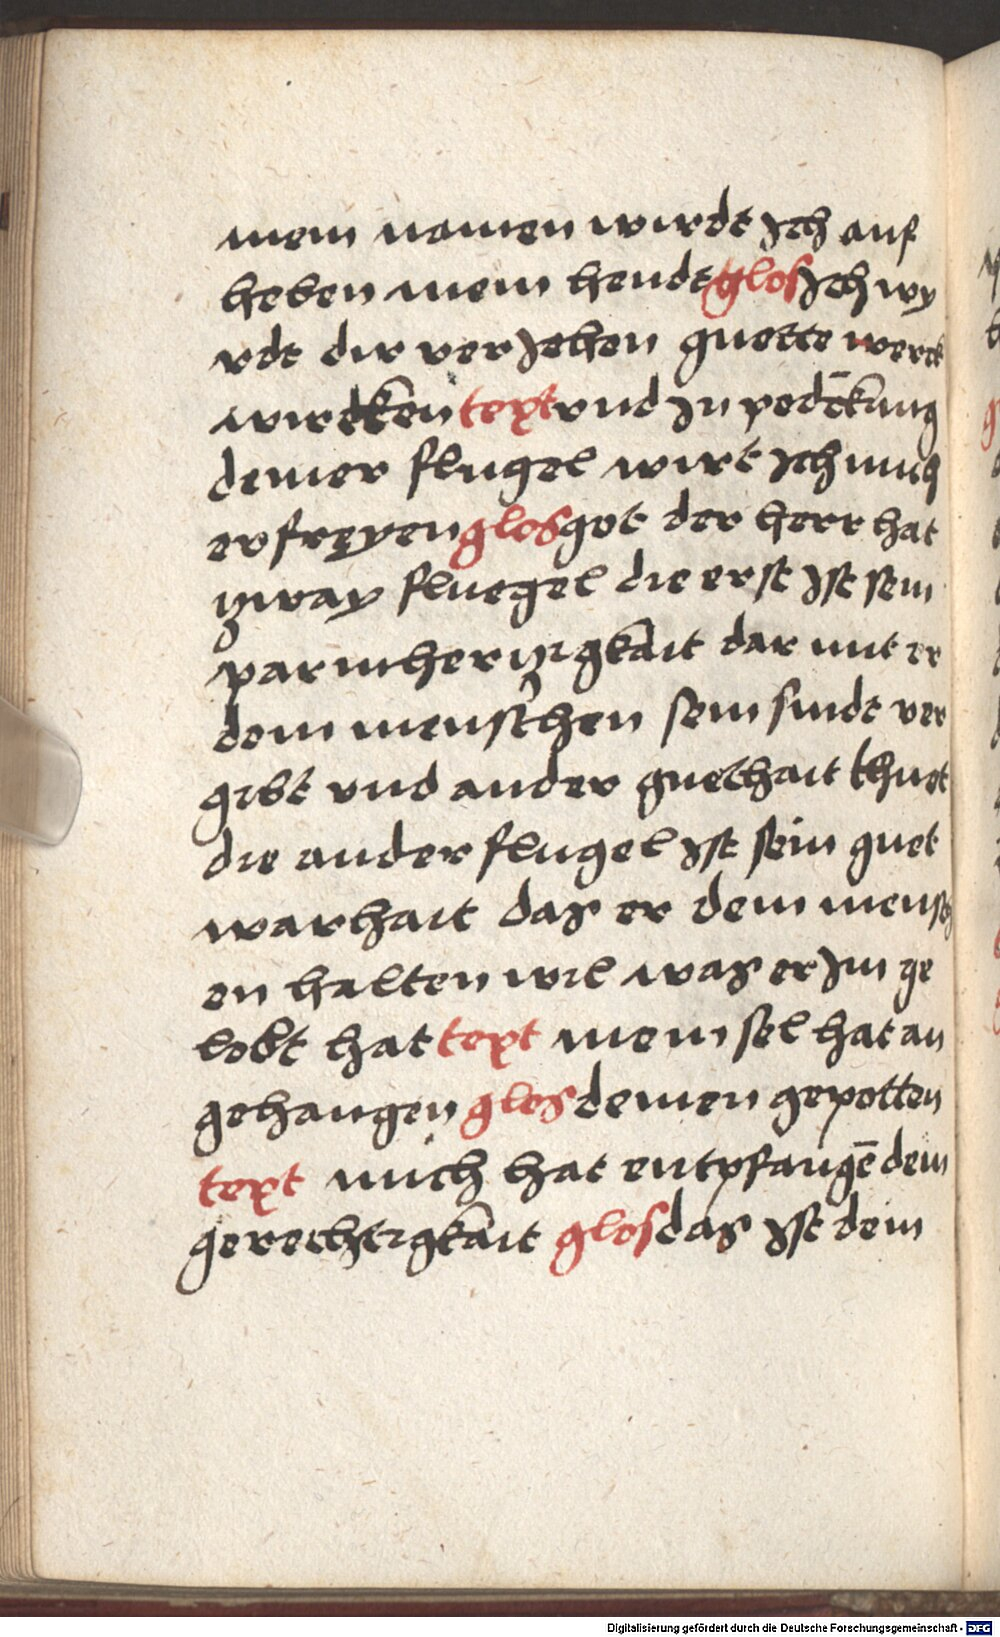 mein namen wirdt Jch auf
heben mein hendt glos Jch wy
rdt dir verJehen guette werck
wircken text vnd Jn pedēkung
deiner flugel wirt Jch mich
erfreyen glos got der herr hat
zway fluegel die erst Jst sein
parmherzigkait dar mit er
dem menschen sein sindt ver
gibt vnd ander guethait thuet
die ander flugel Jst sein guet
warhait das er dem mensch
en halten wil was er Jm ge
lobt hat text mein sel hat an
gehangen glos deinen gepotten
text mich hat entpfangē dein
gerechtigkait glos das Jst dein
Digitalisierung gefördert durch die Deutsche Forschungsgemeinschaft - DFG